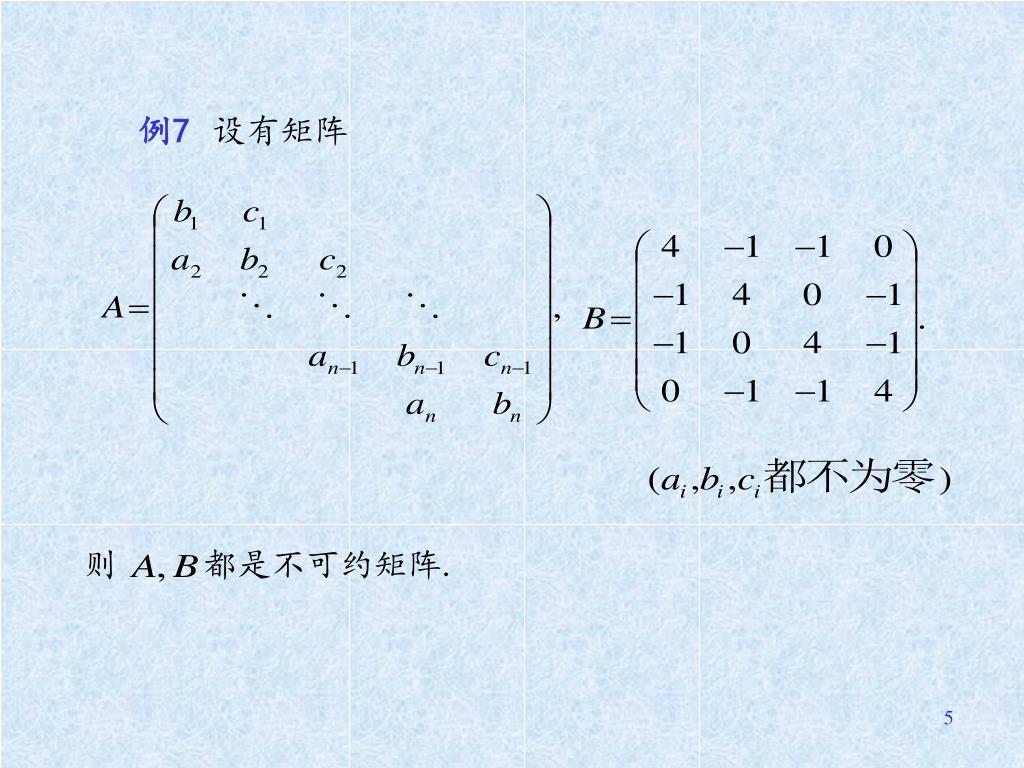 例7 设有矩阵
A = ( b₁ c₁
a₂ b₂ c₂
⋱ ⋱ ⋱
aₙ₋₁ bₙ₋₁ cₙ₋₁
aₙ bₙ ),
B = ( 4 −1 −1 0
−1 4 0 −1
−1 0 4 −1
0 −1 −1 4 ).
(aᵢ,bᵢ,cᵢ都不为零)
则 A, B 都是不可约矩阵.
5